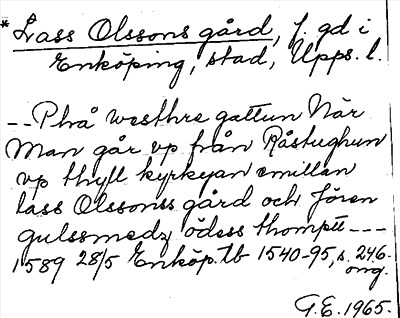 * Lass Olssons gård, f. gd i
Enköping, stad, Upps. l.
-- Phå westhre gattun När
Man går vp från Råstughun
vp thyll kyrkyan emillan
lass Olssonss gård och Jören
gulssmedz ödess thomptt ---
1589 28/5 Enköp. tb 1540-95, s. 246.
orig.
G.E. 1965.